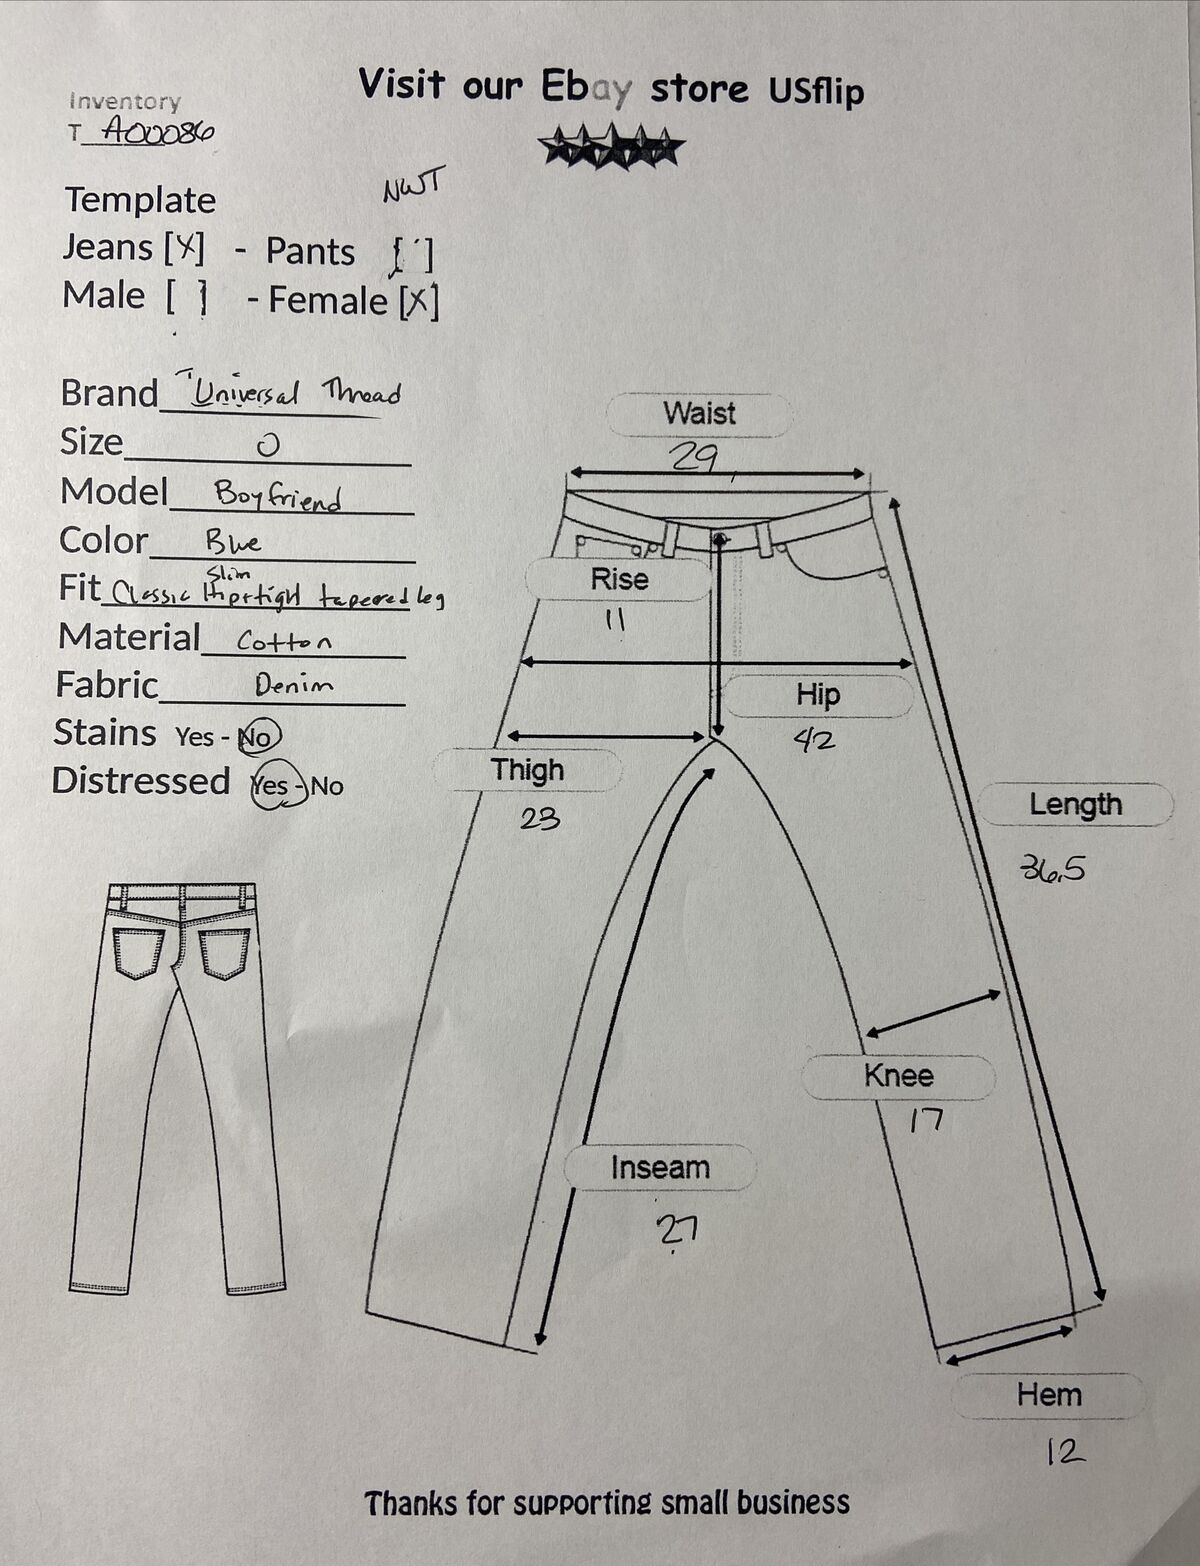 Visit our Ebay store USflip
Inventory
T A00086
NWT
Template
Jeans [X] - Pants [ ]
Male [ ] - Female [X]
Brand Universal Thread
Size 0
Model Boyfriend
Color Blue
Slim
Fit Classic Hip+tigh tapered leg
Material Cotton
Fabric Denim
Stains Yes - No
Distressed Yes - No
Waist
29
Rise
11
Hip
42
Thigh
23
Length
36.5
Knee
17
Inseam
27
Hem
12
Thanks for supporting small business